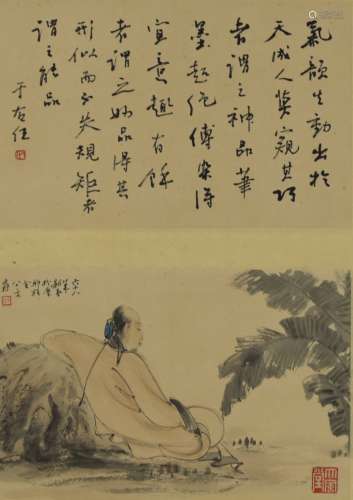 氣韻生動出於
天成人莫窺其巧
者謂之神品筆
墨超絕傅染得
宜意趣有餘
者謂之妙品得其
形似而不失規矩者
謂之能品
于右任